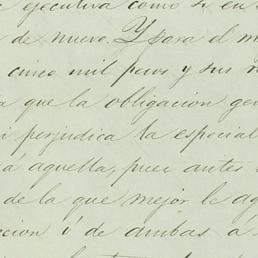 ejecutiva como si en
de nuevo. Y para el m
cinco mil pesos y sus
que la obligacion gen
perjudica la especial
á aquella, pues antes
de la que mejor le ag
cion ó de ambas á